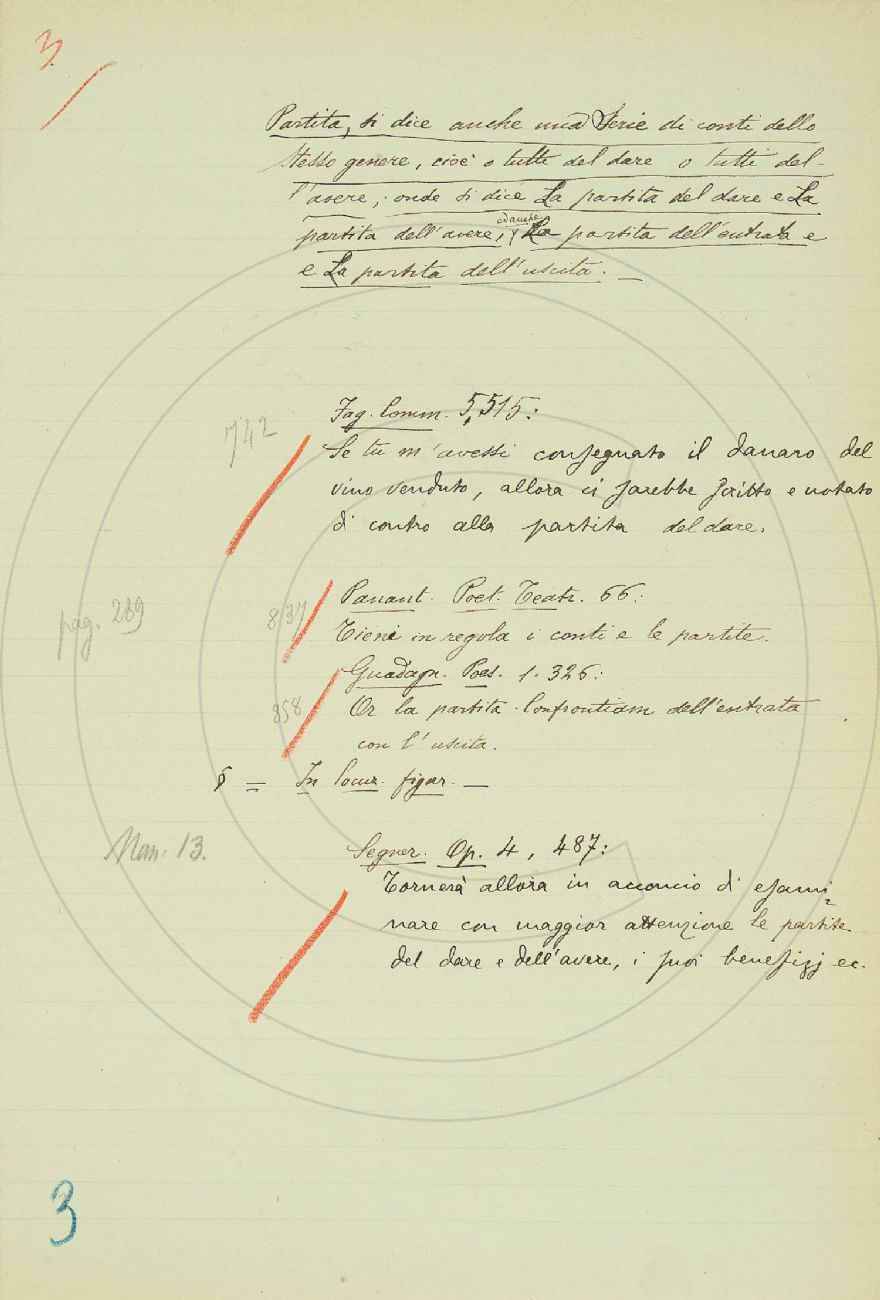 3.
Partita, si dice anche una Serie di conti dello
stesso genere, cioè o tutti del dare o tutti del-
l'avere; onde si dice La partita del dare e La
partita dell'avere, ed anche La partita dell'entrata e
e La partita dell'uscita. —
Fag. Comm. 5,515:
742
Se tu m'avessi consegnato il danaro del
vino venduto, allora ci sarebbe scritto e notato
di contro alla partita del dare.
Panant. Poet. Teatr. 66:
pag. 289
837
Tieni in regola i conti e le partite.
Guadagn. Poes. 1. 326:
858
Or la partita confrontiam dell'entrata
con l'uscita.
§ = In locuz. figur. —
Man. 13.
Segner. Op. 4, 487:
Tornerà allora in acconcio di esami=
nare con maggior attenzione le partite
del dare e dell'avere, i suoi benefizj ec.
3